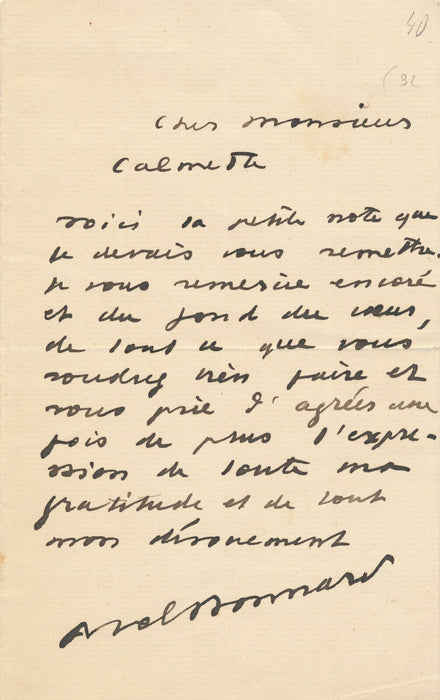 40
(32
Cher Monsieur
Calmette
voici la petite note que
je devais vous remettre.
je vous remercie encore
et du fond du cœur,
de tout ce que vous
voudrez bien faire et
vous prie d'agréer une
fois de plus l'expre-
ssion de toute ma
gratitude et de tout
mon dévouement
Abel Bonnard